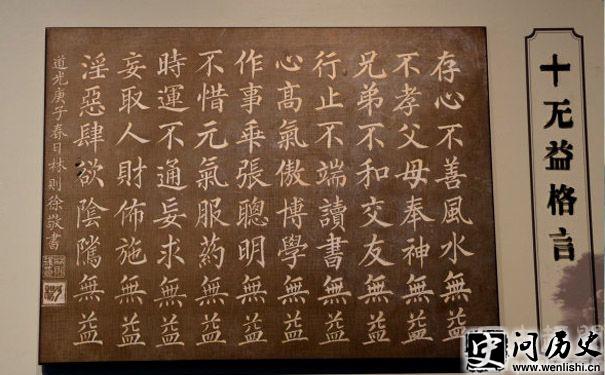 十无益格言
存心不善風水無益
不孝父母奉神無益
兄弟不和交友無益
行止不端讀書無益
心髙氣傲博學無益
作事乖張聰明無益
不惜元氣服葯無益
時運不通妄求無益
妄取人財佈施無益
淫惡肆欲陰隲無益
道光庚子春日林則徐敬書
问历史
www.wenlishi.cn